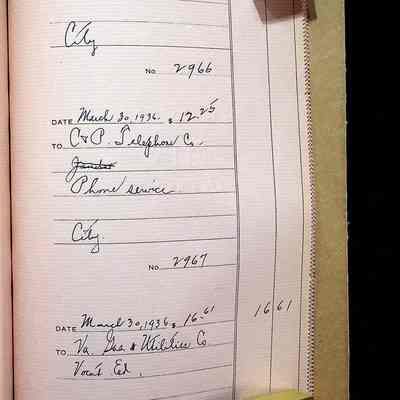 City
No 2966
DATE March 30, 1936. $ 12.25
TO C & P. Telephone Co.
Janitor
Phone service
City.
No. 2967
DATE March 30, 1936 $ 16.61 16 61
TO Va. Gas & Utilities Co
Voca't Ed.